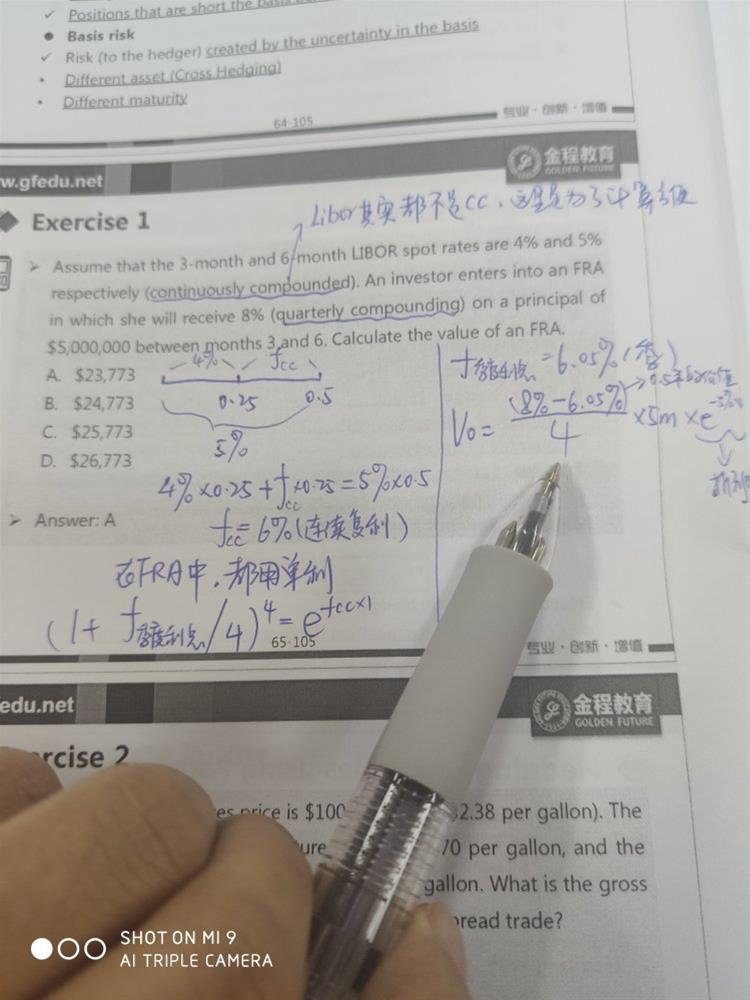 ✓ Positions that are short the basis
● Basis risk
✓ Risk (to the hedger) created by the uncertainty in the basis
• Different asset (Cross Hedging)
• Different maturity
64-105
专业·创新·增值
w.gfedu.net
金程教育
GOLDEN FUTURE
Exercise 1
Libor其实都不是CC,这里是为了计算方便
➢ Assume that the 3-month and 6-month LIBOR spot rates are 4% and 5%
respectively (continuously compounded). An investor enters into an FRA
in which she will receive 8% (quarterly compounding) on a principal of
$5,000,000 between months 3 and 6. Calculate the value of an FRA.
A. $23,773
B. $24,773
C. $25,773
D. $26,773
4% fcc
0.25 0.5
5%
4%×0.25+fcc×0.25=5%×0.5
fcc=6%(连续复利)
➢ Answer: A
在FRA中,都用单利
(1+f季度利息/4)^4=e^fcc×1
f季度利息=6.05%(季)
V0=(8%-6.05%)/4×5m×e
65-105
专业·创新·增值
edu.net
金程教育
GOLDEN FUTURE
rcise 2
es price is $100 2.38 per gallon). The
ure 70 per gallon, and the
gallon. What is the gross
pread trade?
SHOT ON MI 9
AI TRIPLE CAMERA